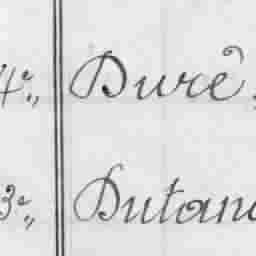 4e„ Durê,
3e„ Dutan